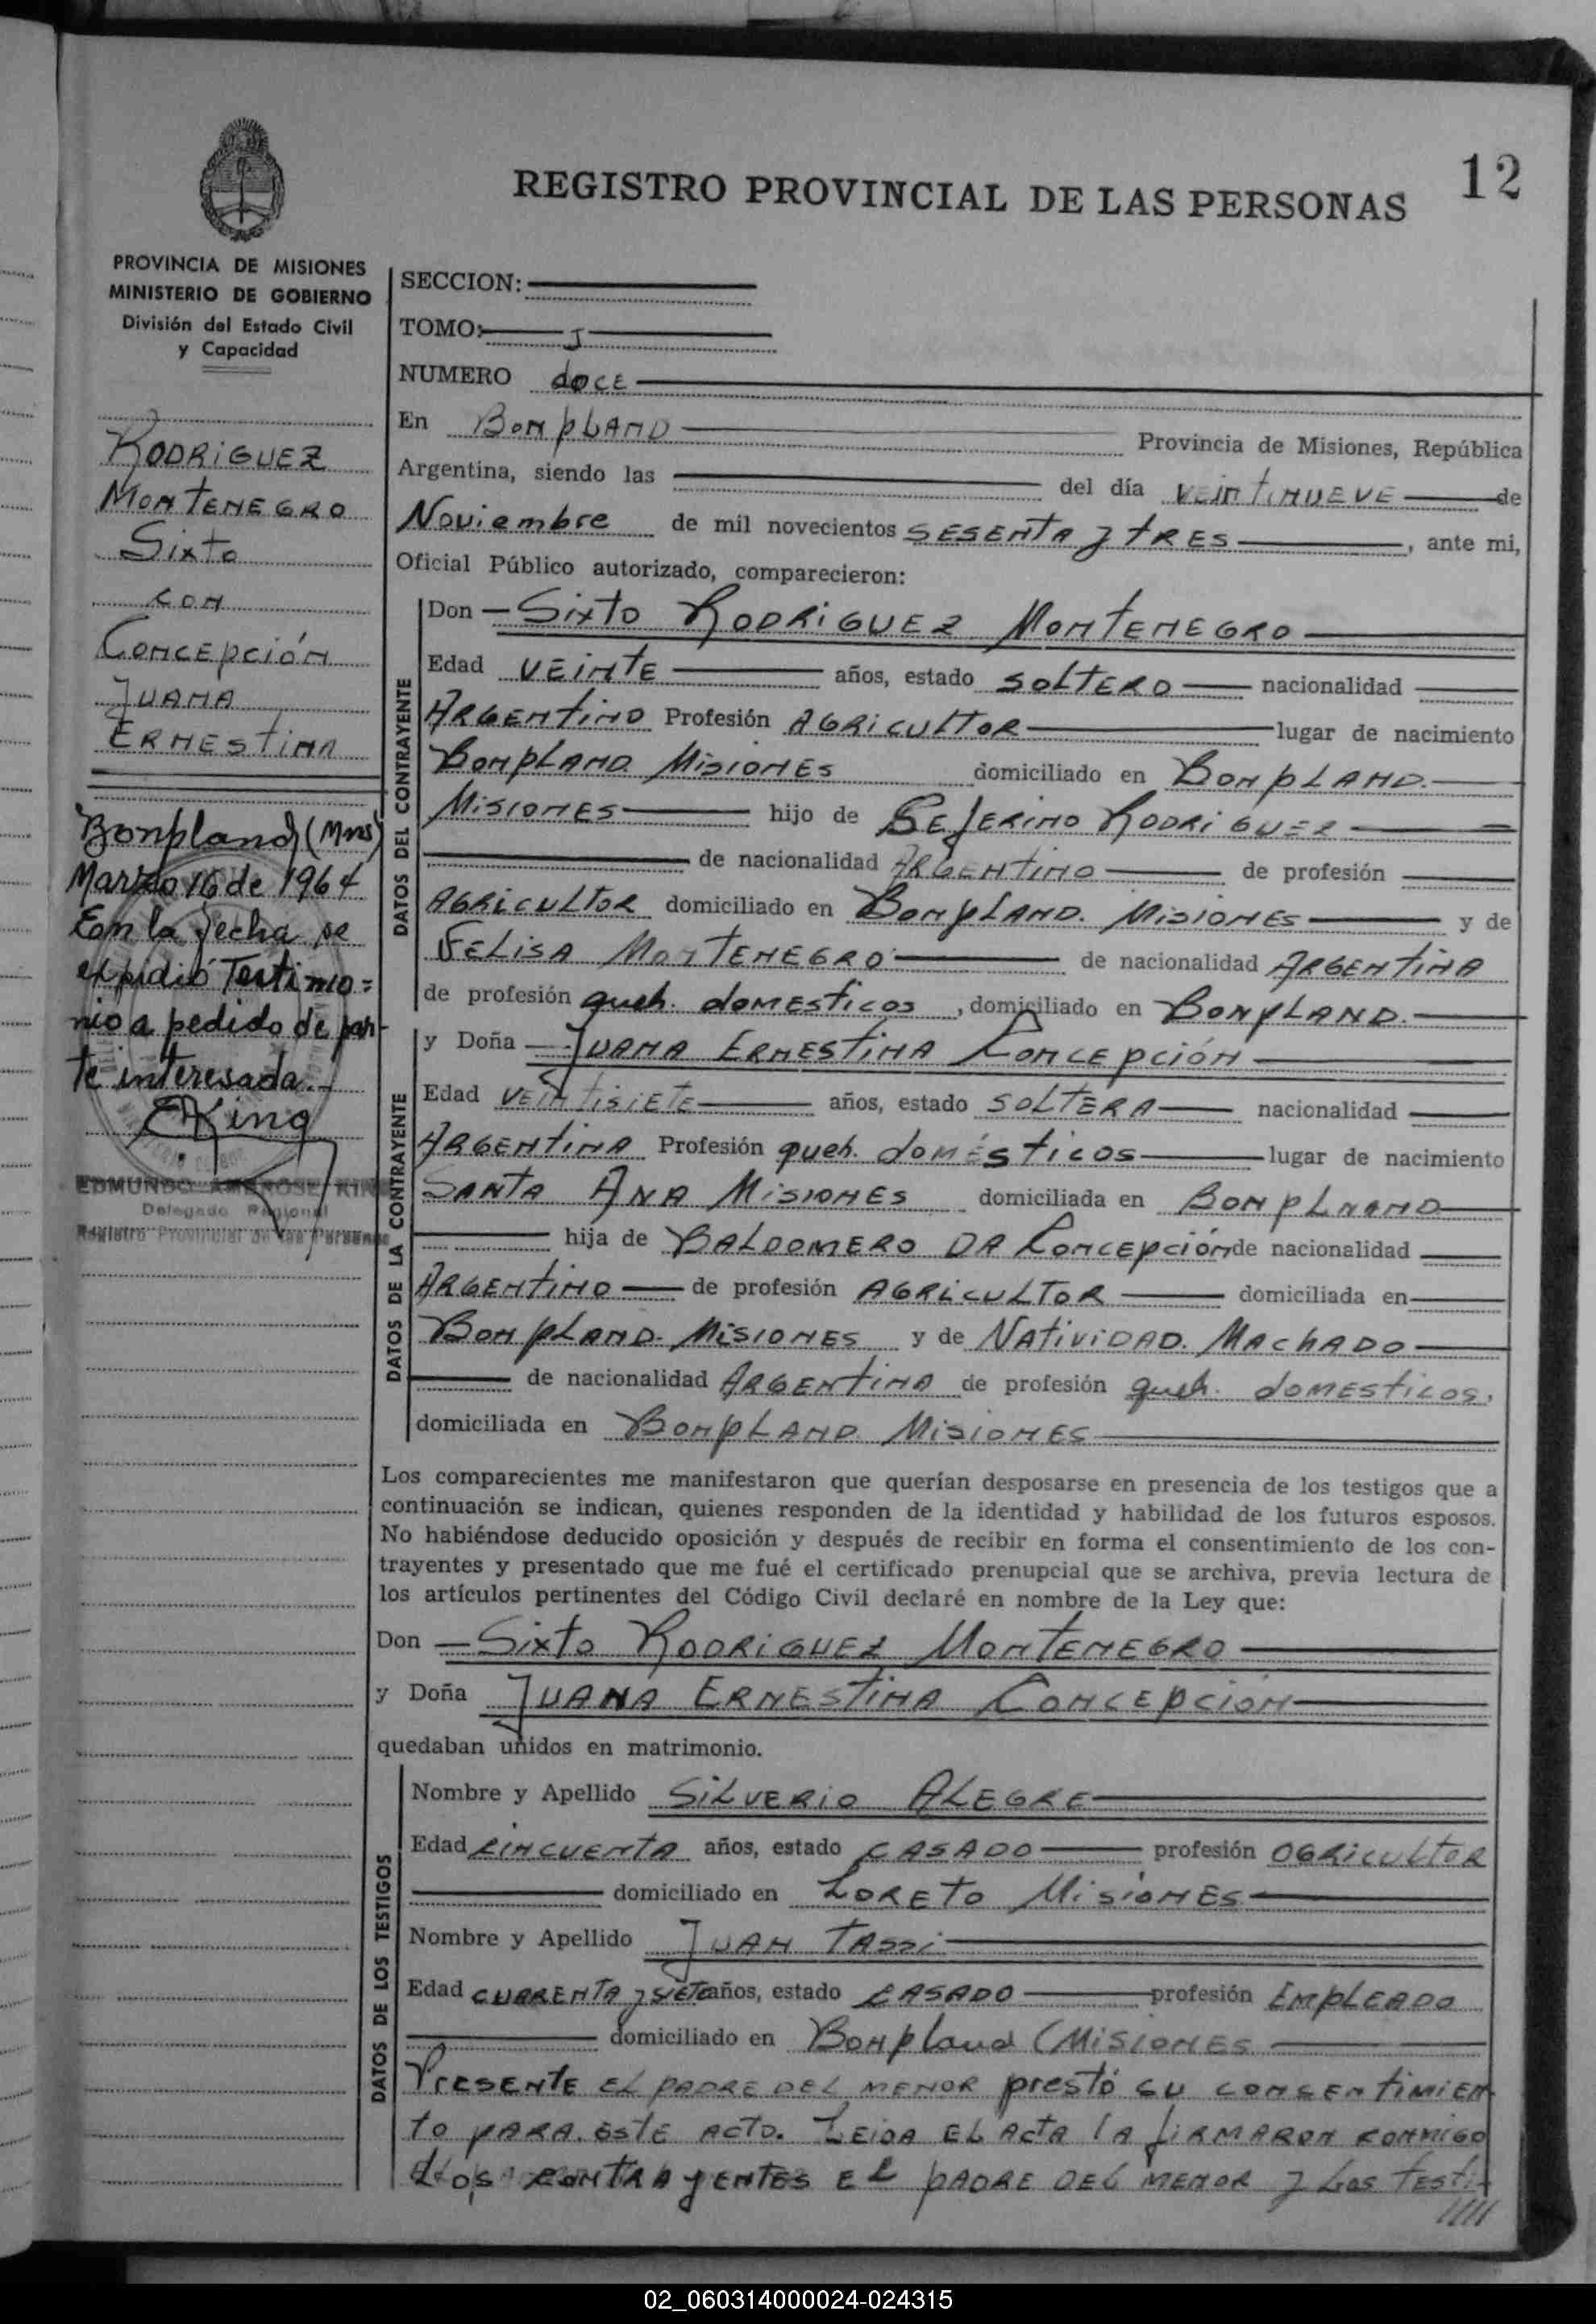 12
REGISTRO PROVINCIAL DE LAS PERSONAS
PROVINCIA DE MISIONES
MINISTERIO DE GOBIERNO
División del Estado Civil
y Capacidad
RODRIGUEZ
MONTENEGRO
Sixto
CON
CONCEPCIÓN
JUANA
ERNESTINA
Bonpland (Mns)
Marzo 16 de 1964
En la fecha se
expidió Testimo=
nio a pedido de par-
te interesada.-
EKing
EDMUNDO AMBROSE KING
Delegado Regional
Registro Provincial de las Personas
SECCION:
TOMO: I
NUMERO doce
En BONPLAND Provincia de Misiones, República
Argentina, siendo las del día VEINTINUEVE de
Noviembre de mil novecientos SESENTA y TRES, ante mi,
Oficial Público autorizado, comparecieron:
DATOS DEL CONTRAYENTE
Don Sixto RODRIGUEZ MONTENEGRO
Edad VEINTE años, estado SOLTERO nacionalidad
ARGENTINO Profesión AGRICULTOR lugar de nacimiento
BONPLAND MISIONES domiciliado en BONPLAND.
MISIONES hijo de SEFERINO RODRIGUEZ
de nacionalidad ARGENTINO de profesión
AGRICULTOR domiciliado en BONPLAND. MISIONES y de
FELISA MONTENEGRO de nacionalidad ARGENTINA
de profesión queh. domESTICOS, domiciliado en BONPLAND.
DATOS DE LA CONTRAYENTE
y Doña JUANA ERNESTINA CONCEPCIÓN
Edad VEINTISIETE años, estado SOLTERA nacionalidad
ARGENTINA Profesión queh. doméSTICOS lugar de nacimiento
SANTA ANA MISIONES domiciliada en BONPLNAND
hija de BALDOMERO DA CONCEPCIÓN de nacionalidad
ARGENTINO de profesión AGRICULTOR domiciliada en
BONPLAND. MISIONES y de NATIVIDAD. MACHADO
de nacionalidad ARGENTINA de profesión queh. doMESTICOS,
domiciliada en BONPLAND MISIONES
Los comparecientes me manifestaron que querían desposarse en presencia de los testigos que a
continuación se indican, quienes responden de la identidad y habilidad de los futuros esposos.
No habiéndose deducido oposición y después de recibir en forma el consentimiento de los con-
trayentes y presentado que me fué el certificado prenupcial que se archiva, previa lectura de
los artículos pertinentes del Código Civil declaré en nombre de la Ley que:
Don Sixto RODRIGUEZ MONTENEGRO
y Doña JUANA ERNESTINA CONCEPCION
quedaban unidos en matrimonio.
DATOS DE LOS TESTIGOS
Nombre y Apellido SILVERIO ALEGRE
Edad CINCUENTA años, estado CASADO profesión OGRICULTOR
domiciliado en LORETO MISIONES
Nombre y Apellido JUAN TASSI
Edad CUARENTA y SIETE años, estado CASADO profesión EMPLEADO
domiciliado en BONPLAND (MISIONES
PRESENTE EL PADRE DEL MENOR prestó su CONSENTIMIEN
to PARA ESTE ACTO. LEIDA EL ACTA LA FIRMARON CONMIGO
LOS CONTRAYENTES EL PADRE DEL MENOR y Los TESTI-
////
02_060314000024-024315